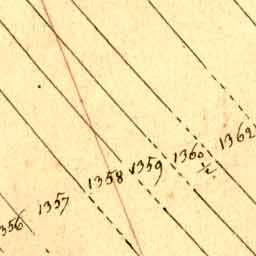 356
1357
1358
1359
1360
1/2
1362